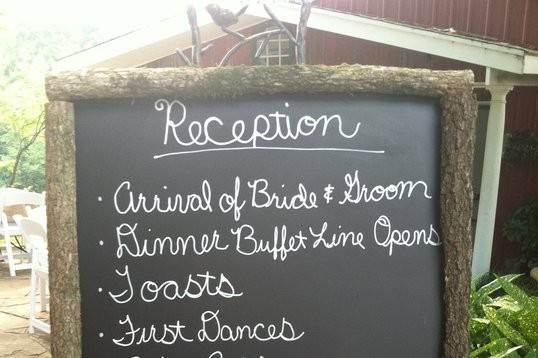 Reception
· Arrival of Bride & Groom
· Dinner Buffet Line Opens
· Toasts
· First Dances